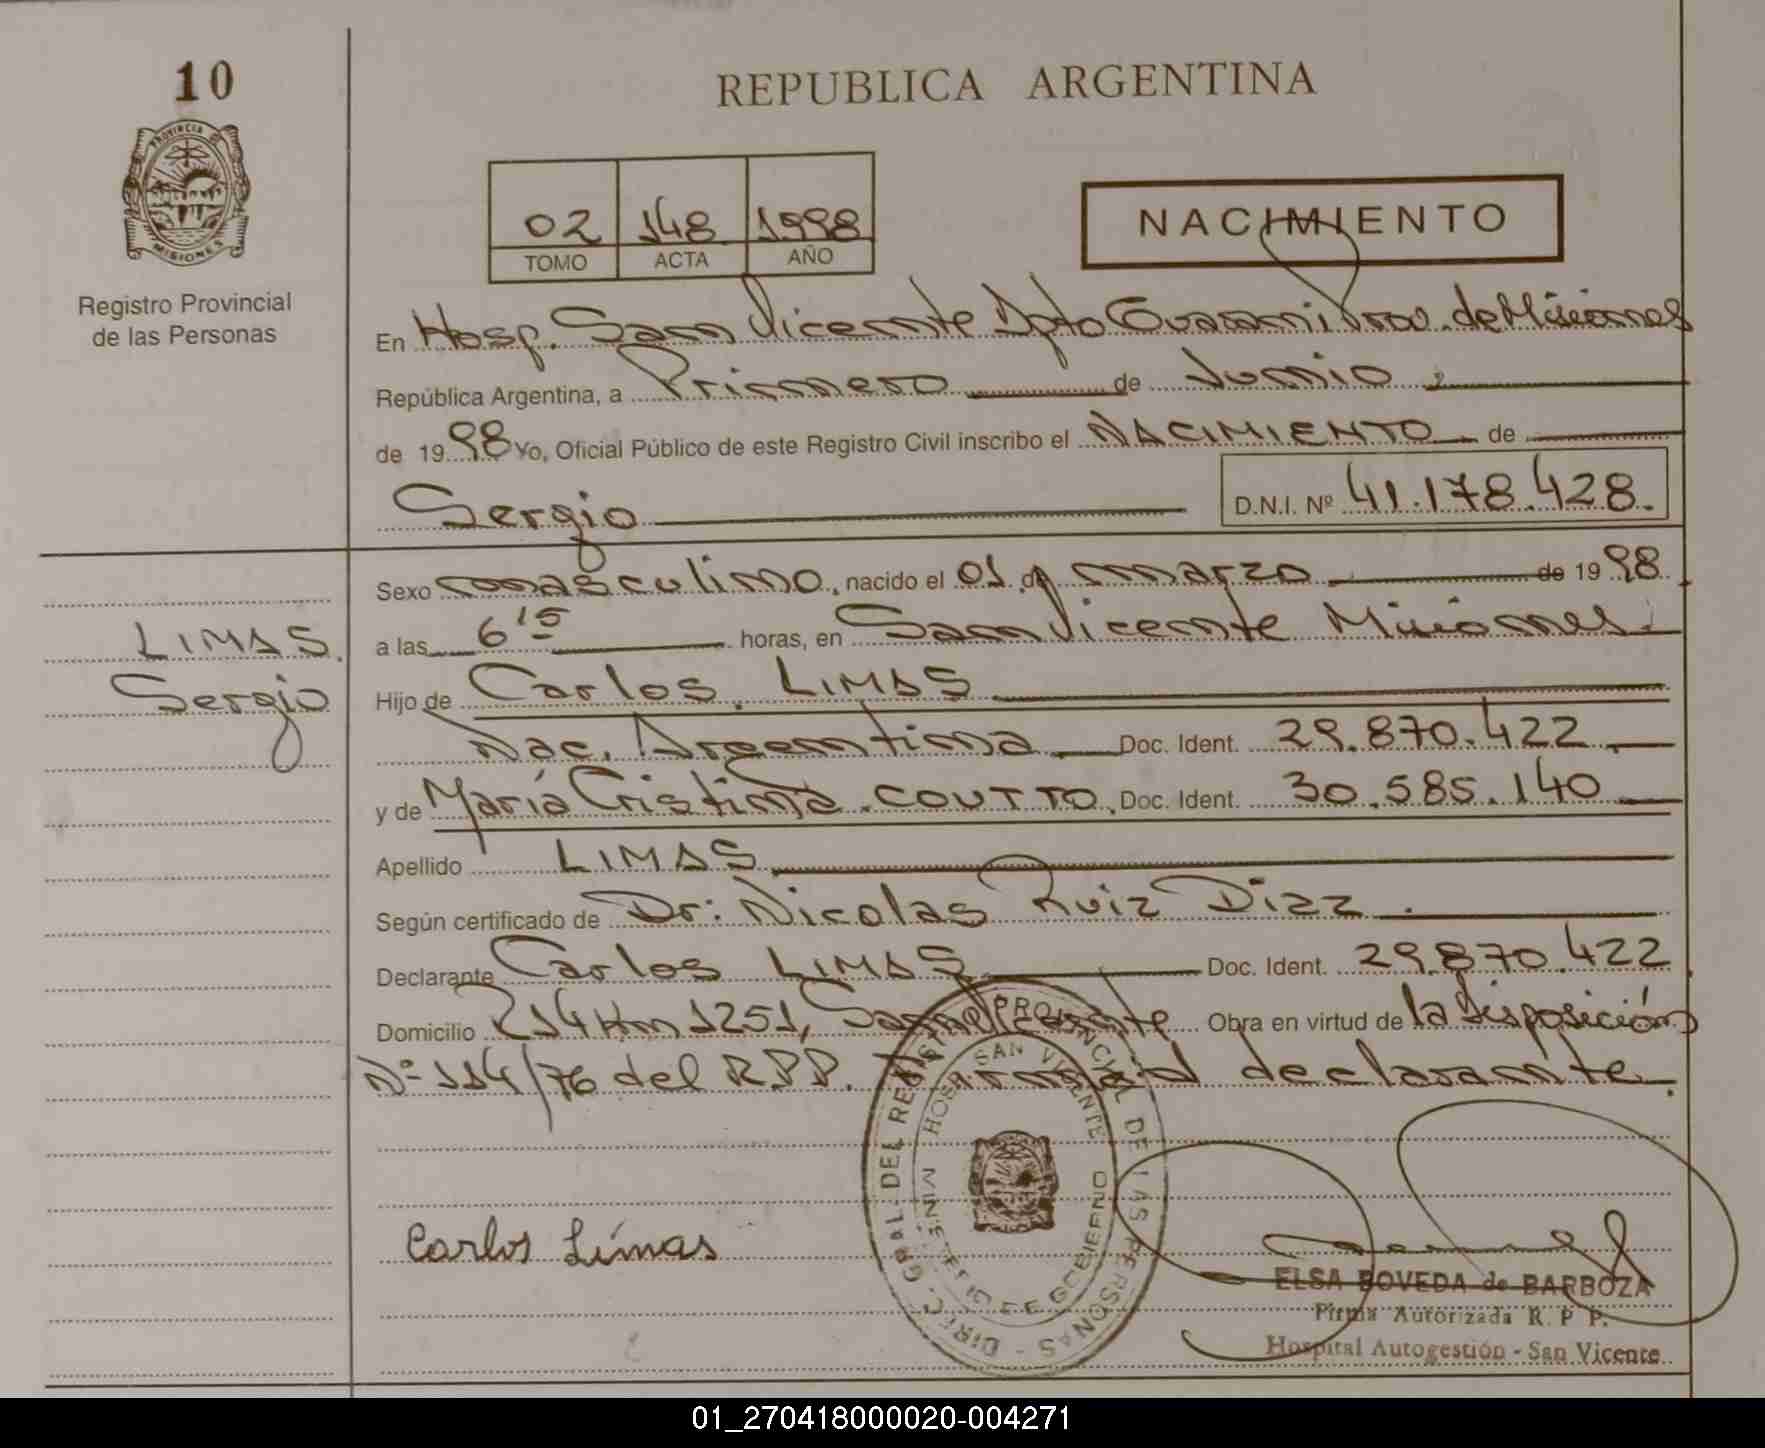 10
PROVINCIA
MISIONES
Registro Provincial
de las Personas
REPUBLICA ARGENTINA
02 148 1998
TOMO ACTA AÑO
NACIMIENTO
En Hosp. San Vicente Dpto Guarani Prov. de Misiones
República Argentina, a Primero de Junio
de 1998 Yo, Oficial Público de este Registro Civil inscribo el NACIMIENTO de
Sergio D.N.I. Nº 41.178.428.
Sexo masculino, nacido el 01 de marzo de 1998
a las 6 15 horas, en San Vicente Misiones.
LIMAS
Sergio
Hijo de Carlos LIMAS
Nac. Argentina Doc. Ident. 29.870.422
y de María Cristina COUTTO. Doc. Ident. 30.585.140
Apellido LIMAS
Según certificado de Dr: Nicolas Ruiz Dizz
Declarante Carlos LIMAS Doc. Ident. 29.870.422
Domicilio R14 Km 1251, San Vicente Obra en virtud de la disposición
Nº 114/76 del R.P.P. declarante.
DIREC. GRAL. DEL REGIST. PROVINCIAL DE LAS PERSONAS -
HOSP. SAN VICENTE
MINISTERIO DE GOBIERNO
Carlos Limas
ELSA BOVEDA de BARBOZA
Firma Autorizada R. P P.
Hospital Autogestión - San Vicente
01_270418000020-004271